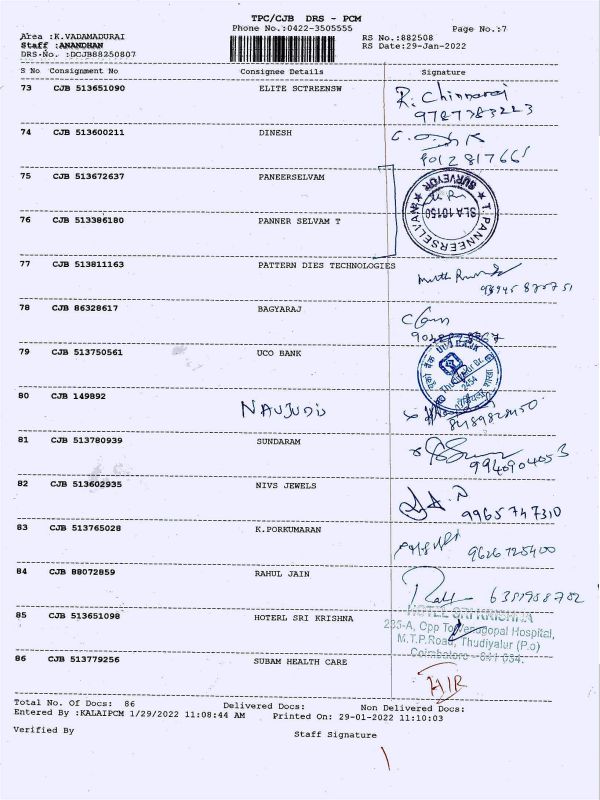 TPC/CJB DRS - PCM
Phone No.:0422-3505555 Page No.:7
Area :K.VADAMADURAI RS No.:882508
Staff :ANANDHAN RS Date:29-Jan-2022
DRS-No. :DCJB88250807
S No Consignment No Consignee Details Signature
73 CJB 513651090 ELITE SCTREENSW R. Chinnaraj
9787783223
74 CJB 513600211 DINESH
9012817665
75 CJB 513672637 PANEERSELVAM
T. PANNEERSELVAM
SURVEYOR
SLA 10150
76 CJB 513386180 PANNER SELVAM T
77 CJB 513811163 PATTERN DIES TECHNOLOGIES
78 CJB 86328617 BAGYARAJ
79 CJB 513750561 UCO BANK
UCO BANK
Thudiyalur Br.
2454
80 CJB 149892 NAUJUDU
8489828450
81 CJB 513780939 SUNDARAM
9940904053
82 CJB 513602935 NIVS JEWELS
9965747310
83 CJB 513765028 K.PORKUMARAN
9626725400
84 CJB 88072859 RAHUL JAIN
6351958782
85 CJB 513651098 HOTERL SRI KRISHNA
HOTEL SRI KRISHNA
235-A, Opp To Venugopal Hospital,
M.T.P.Road, Thudiyalur (P.o)
Coimbatore - 641 034.
86 CJB 513779256 SUBAM HEALTH CARE
Total No. Of Docs: 86 Delivered Docs: Non Delivered Docs:
Entered By :KALAIPCM 1/29/2022 11:08:44 AM Printed On: 29-01-2022 11:10:03
Verified By Staff Signature